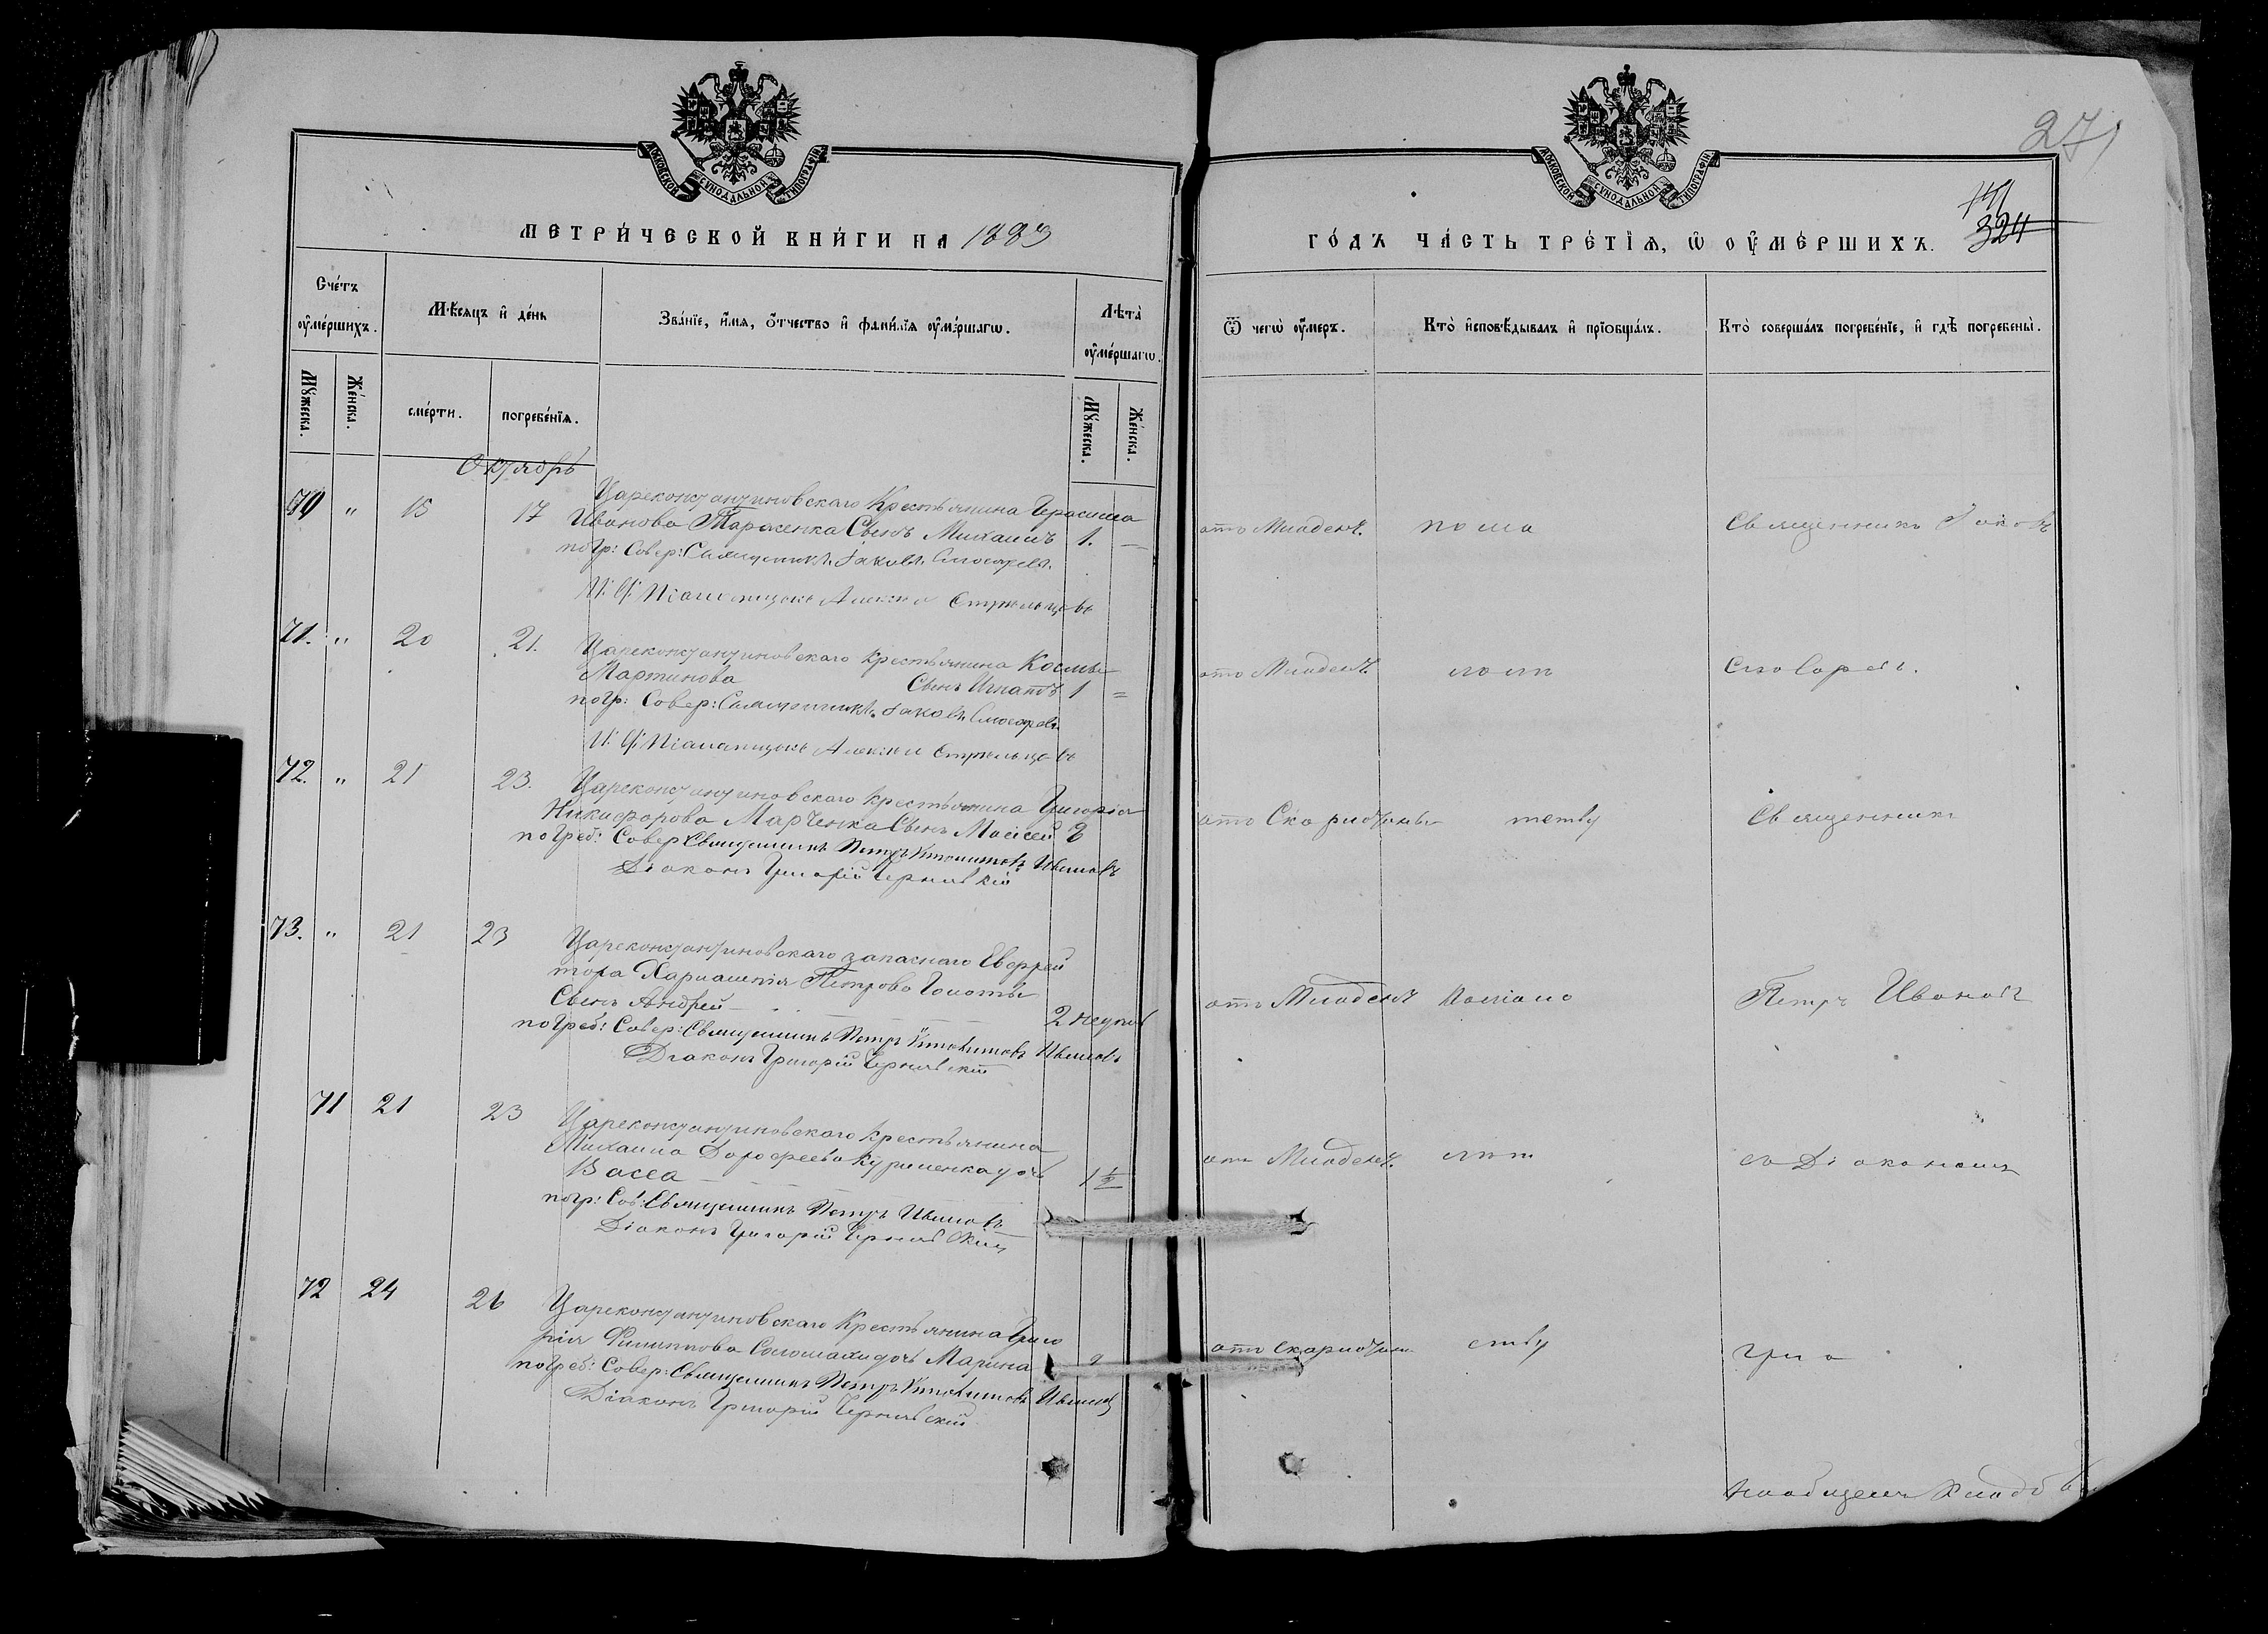 МОСКОВСКОЙ СУНОДАЛЬНОЙ ТИПОГРАФІИ.
МЕТРИ́ЧЕСКОЙ КНИ́ГИ НА 1883
Сче́тъ ᲂу҆ме́ршихъ.
Мꙋ́жеска.
Же́нска.
Мѣ́сяцъ и҆ де́нь
сме́рти.
погребе́нїя.
Зва́нїе, и҆́мѧ, ѻ҆́тчество и҆ фамѝлїѧ ᲂу҆ме́ршагѡ.
Лѣ́та ᲂу҆ме́ршагѡ.
Мꙋ́жеска.
Же́нска.
Октябрь
70 " 15 17 Цареконстантиновскаго Крестьянина Герасима
Иванова Тараненка Сынъ Михаилъ 1. —
погр: Совер: Священникъ Іаковъ Слюсаревъ
И: Д: Псаломщика Алексѣй Стрѣльцовъ
71. " 20 21. Цареконстантиновскаго Крестьянина Космы
Мартинова Сынъ Игнатъ 1 =
погр: Совер: Священникъ Іаковъ Слюсаревъ
И: Д: Псаломщика Алексѣй Стрѣльцовъ
72. " 21 23. Цареконстантиновскаго крестьянина Григорія
Никифорова Марченка Сынъ Моисей
погреб: Совер Священникъ Петръ Ивановъ
Діаконъ Григорій Чернявскій
73. " 21 23 Цареконстантиновскаго запаснаго Ефрей
тора Харлампія Петрова Голоты
Сынъ Андрей — 2 недѣл
погреб: Совер: Священникъ Петръ Ивановъ
Діаконъ Григорій Чернявскій
71 21 23 Цареконстантиновскаго Крестьянина
Михаила Дорофеева дочь
Васса — 1 1/2
погр: Сов: Священникъ Петръ Ивановъ
Діаконъ Григорій Чернявскій
72 24 26 Цареконстантиновскаго Крестьянина Григо
рія Филиппова дочь Марина
погреб: Совер: Священникъ Петръ Ивановъ
Діаконъ Григорій Чернявскій
271
324
МОСКОВСКОЙ СУНОДАЛЬНОЙ ТИПОГРАФІИ.
ГО́ДЪ ЧА́СТЬ ТРЕ́ТЇѦ, Ѡ҆ ОУ҆МЕ́РШИХЪ.
Ѿ чегѡ̀ ᲂу҆́меръ.
Кто̀ и҆сповѣ́дывалъ и҆ прїѡбща́лъ.
Кто̀ соверша́лъ погребе́нїе, и҆ гдѣ̀ погребены̀.
отъ Младенч. по ма Священникъ Іаковъ
отъ Младенч. лолѣ Слюсаревъ.
отъ Скарлатины тетву Священникъ
отъ Младенч Петръ Ивановъ
отъ Младенч. съ Діакономъ
отъ скарлатин ству Григо
на общемъ кладб